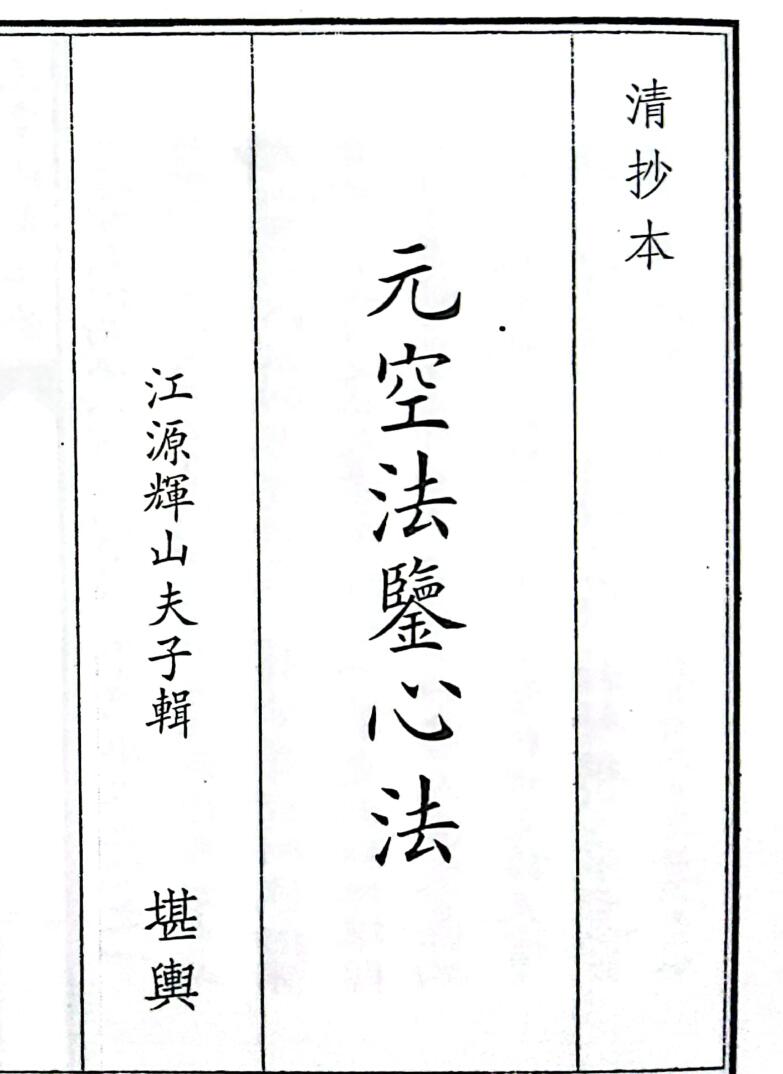 清抄本
元空法鑒心法
江源輝山夫子輯 堪輿